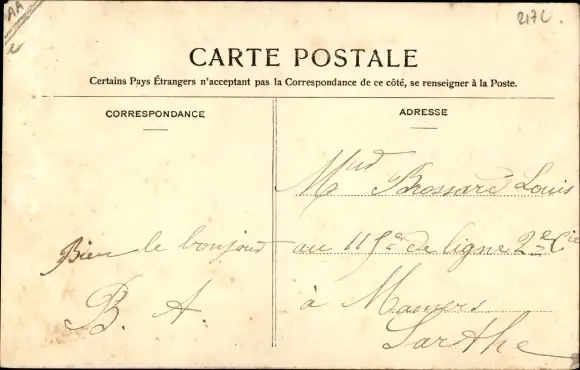 AA
217C
CARTE POSTALE
Certains Pays Étrangers n'acceptant pas la Correspondance de ce côté, se renseigner à la Poste.
CORRESPONDANCE
Bien le bonjour
B. A.
ADRESSE
Brossard Louis
au 115e de ligne 2e Cie
à Mamers
Sarthe